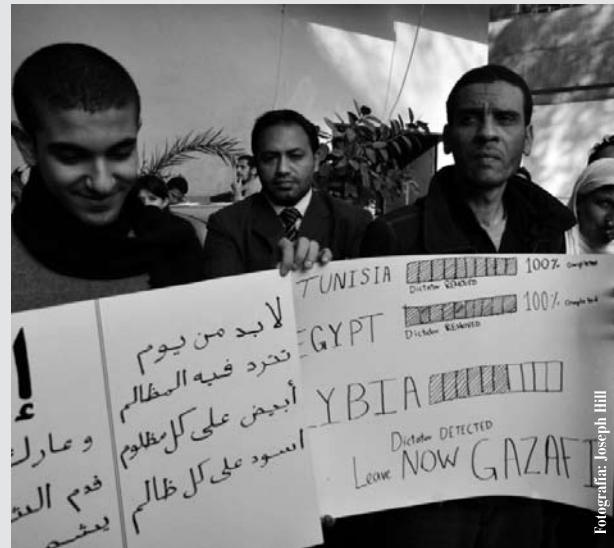 لابد من يوم
تترد فيه المظالم
أبيض على كل مظلوم
اسود على كل ظالم
إ
وعارك
قدم
TUNISIA 100% Completed
Dictator REMOVED
EGYPT 100% Completed
Dictator REMOVED
LYBIA
Dictator DETECTED
Leave NOW GAZAFI
Fotografia: Joseph Hill